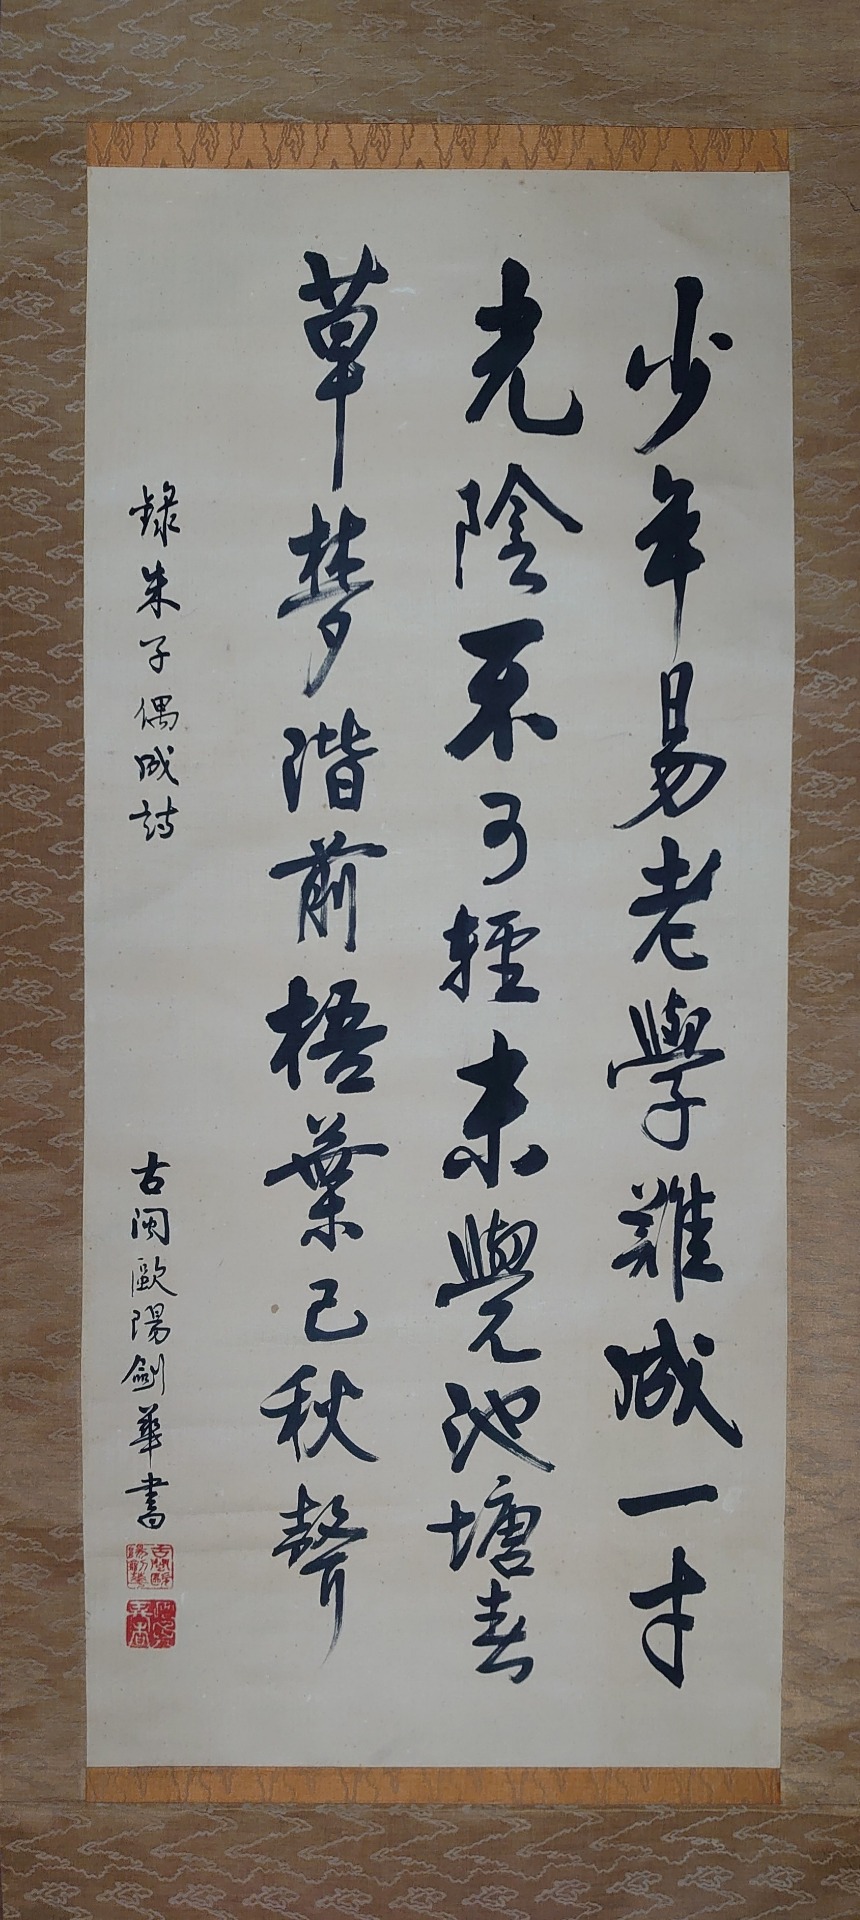 少年易老學難成一寸
光陰不可輕未覺池塘春
草夢階前梧葉已秋聲
錄朱子偶成詩
古閩歐陽劍華書